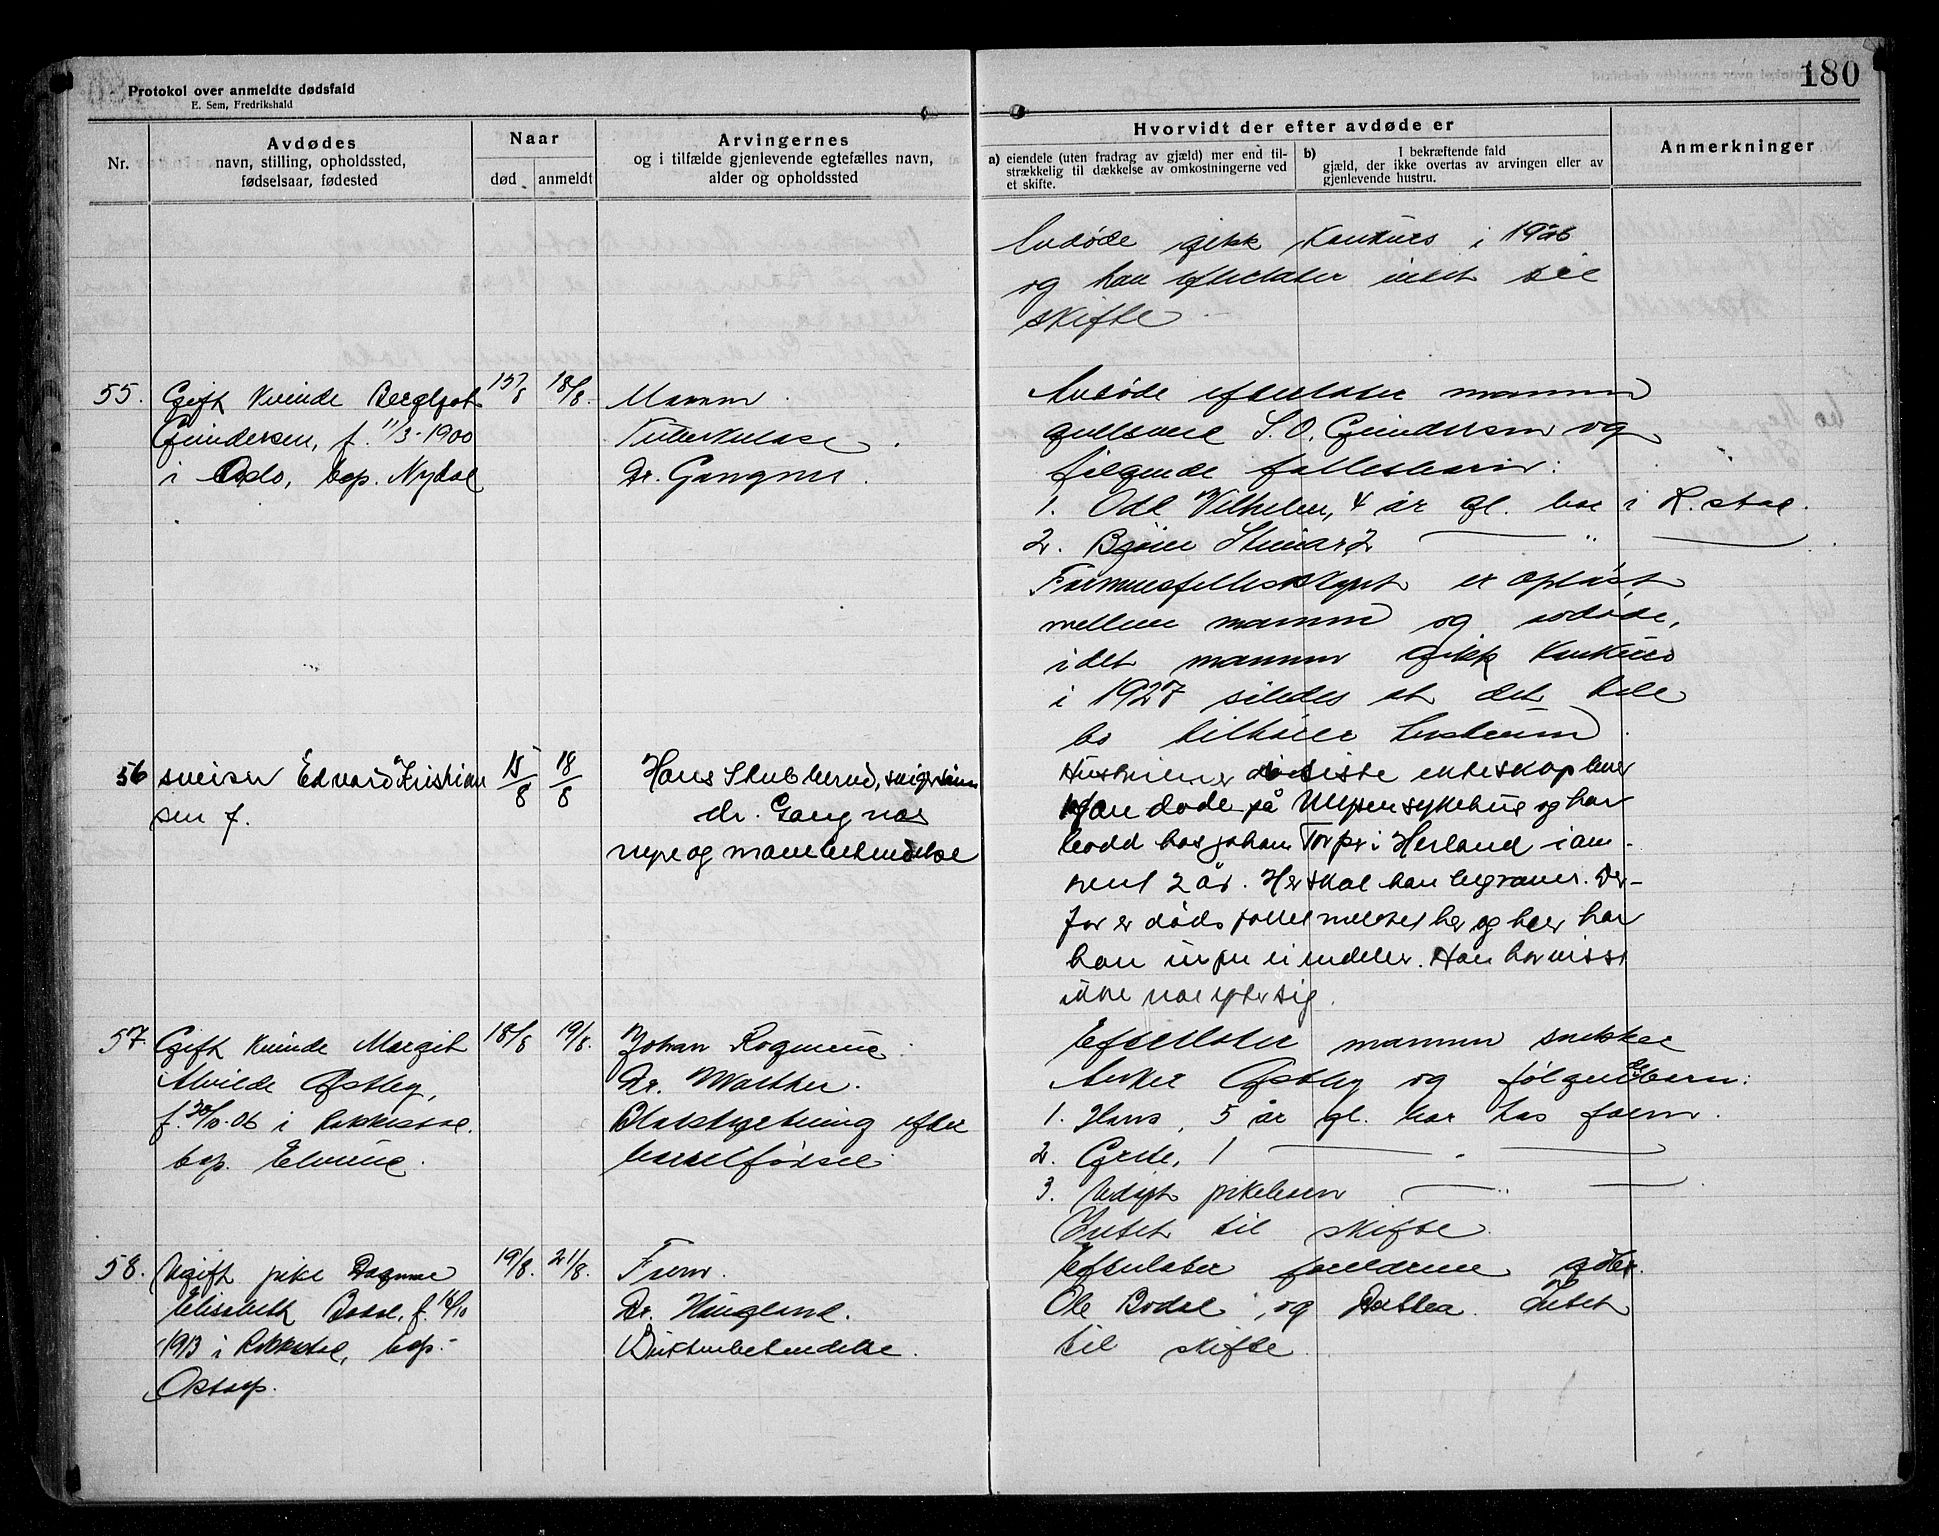 180
Protokol over anmeldte dødsfald
E. Sem, Fredrikshald
Nr.
Avdødes
navn, stilling, opholdssted,
fødselsaar, fødested
Naar
død
anmeldt
Arvingernes
og i tilfælde gjenlevende egtefælles navn,
alder og opholdssted
Hvorvidt der efter avdøde er
a) eiendele (uten fradrag av gjæld) mer end til-
strækkelig til dækkelse av omkostningerne ved
et skifte.
b) I bekræftende fald
gjæld, der ikke overtas av arvingen eller av
gjenlevende hustru.
Anmerkninger
Avdøde gikk konkurs i 1926
og han efterlater intet til
skifte
55. Gift kvinde Bergljot
Gundersen, f. 11/3-1900
i Oslo, bop. Nydal
15/8
18/8.
Mannen.
Tuberkulose.
Dr. Gangnes.
Avdøde efterlater mannen
gullsmed S. O. Gundersen og
følgende fællesbarn:
1. Odd Vilhelm, 4 år gl. bor i R.stad.
2. Bjørn Steinar 2 — " —
Formuesfellesskapet er opløst
mellem mannen og avdøde,
idet mannen gikk konkurs
i 1927 således at det hele
bo tilhører hustruen.
56 sveiser Edvard Kristian
sen f.
15/8
18/8
Hans Skubberud, svigersønn
dr. Gangnes
nyre og mavebetendelse
Han døde på Ullpen sykehus og har
bodd hos Johan Torper i Herland i om-
trent 2 år. Her skal han begraves. Der-
for er dødsfallet meldt her og her har
han ingen eiendeler. Han har visst
ikke noe efter sig.
57. Gift kvinde Margit
Alvilde Østby,
f. 20/10-06 i Rakkestad.
bop. Elvine.
18/8
19/8.
Johan
Dr. Walther.
Blodstyrtning efter
barselfødsel.
Efterlater mannen snekker
Anker Østby og følgende barn:
1. Hans, 5 år gl. bor hos faren.
2. Grete, 1 — " —
3. Udøpt pikebarn — " —
Intet til skifte.
58. Ugift pike Dagmar
Elisabeth Bodal, f. 16/10
1913 i Rakkestad, bop.
Østorp.
19/8.
21/8.
Faren.
Dr. Haugland.
Efterlater foreldrene gdbr.
Ole Bodal og Dorthea. Intet
til skifte.